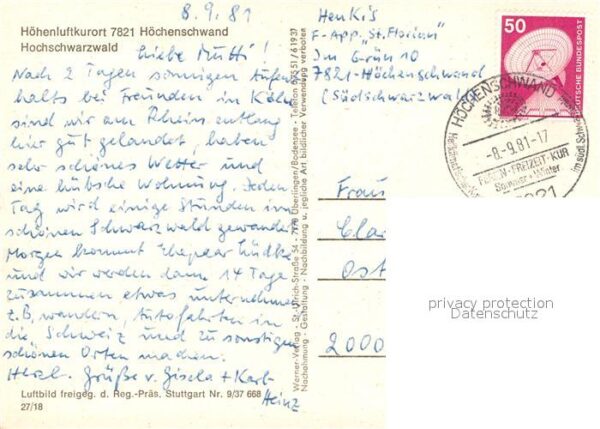 8.9.81
Höhenluftkurort 7821 Höchenschwand
Hochschwarzwald
Liebe Mutti!
Nach 2 Tagen sonnigen Aufent
halts bei Freunden in Köln
sind wir am Rhein entlang
hier gut gelandet, haben
sehr schönes Wetter und
eine hübsche Wohnung. Jeden
Tag wird einige Stunden im
schönen Schwarzwald gewandert
Morgen kommt Ehepaar Lüdke
und wir werden dann 14 Tage
zusammen etwas unternehmen
z.B. wandern, Autofahrten in
die Schweiz und zu sonstigen
schönen Orten machen.
Herzl. Grüße v. Gisela + Karl-
Heinz
Luftbild freigeg. d. Reg.-Präs. Stuttgart Nr. 9/37 668
27/18
Werner-Verlag - St.-Ulrich-Straße 54 - 7770 Überlingen/Bodensee - Telefon 07551/61937
Nachahmung - Gestaltung - Nachbildung u. jegliche Art bildlicher Verwendung verboten
F-App. "St. Florian"
Im Grün 10
7821-Höchenschwand
(Südschwarzwald
50
DEUTSCHE BUNDESPOST
HÖCHENSCHWAND
-8.-9.81-17
FERIEN-FREIZEIT-KUR
Sommer + Winter
7821
Frau
Ost
2000
privacy protection
Datenschutz